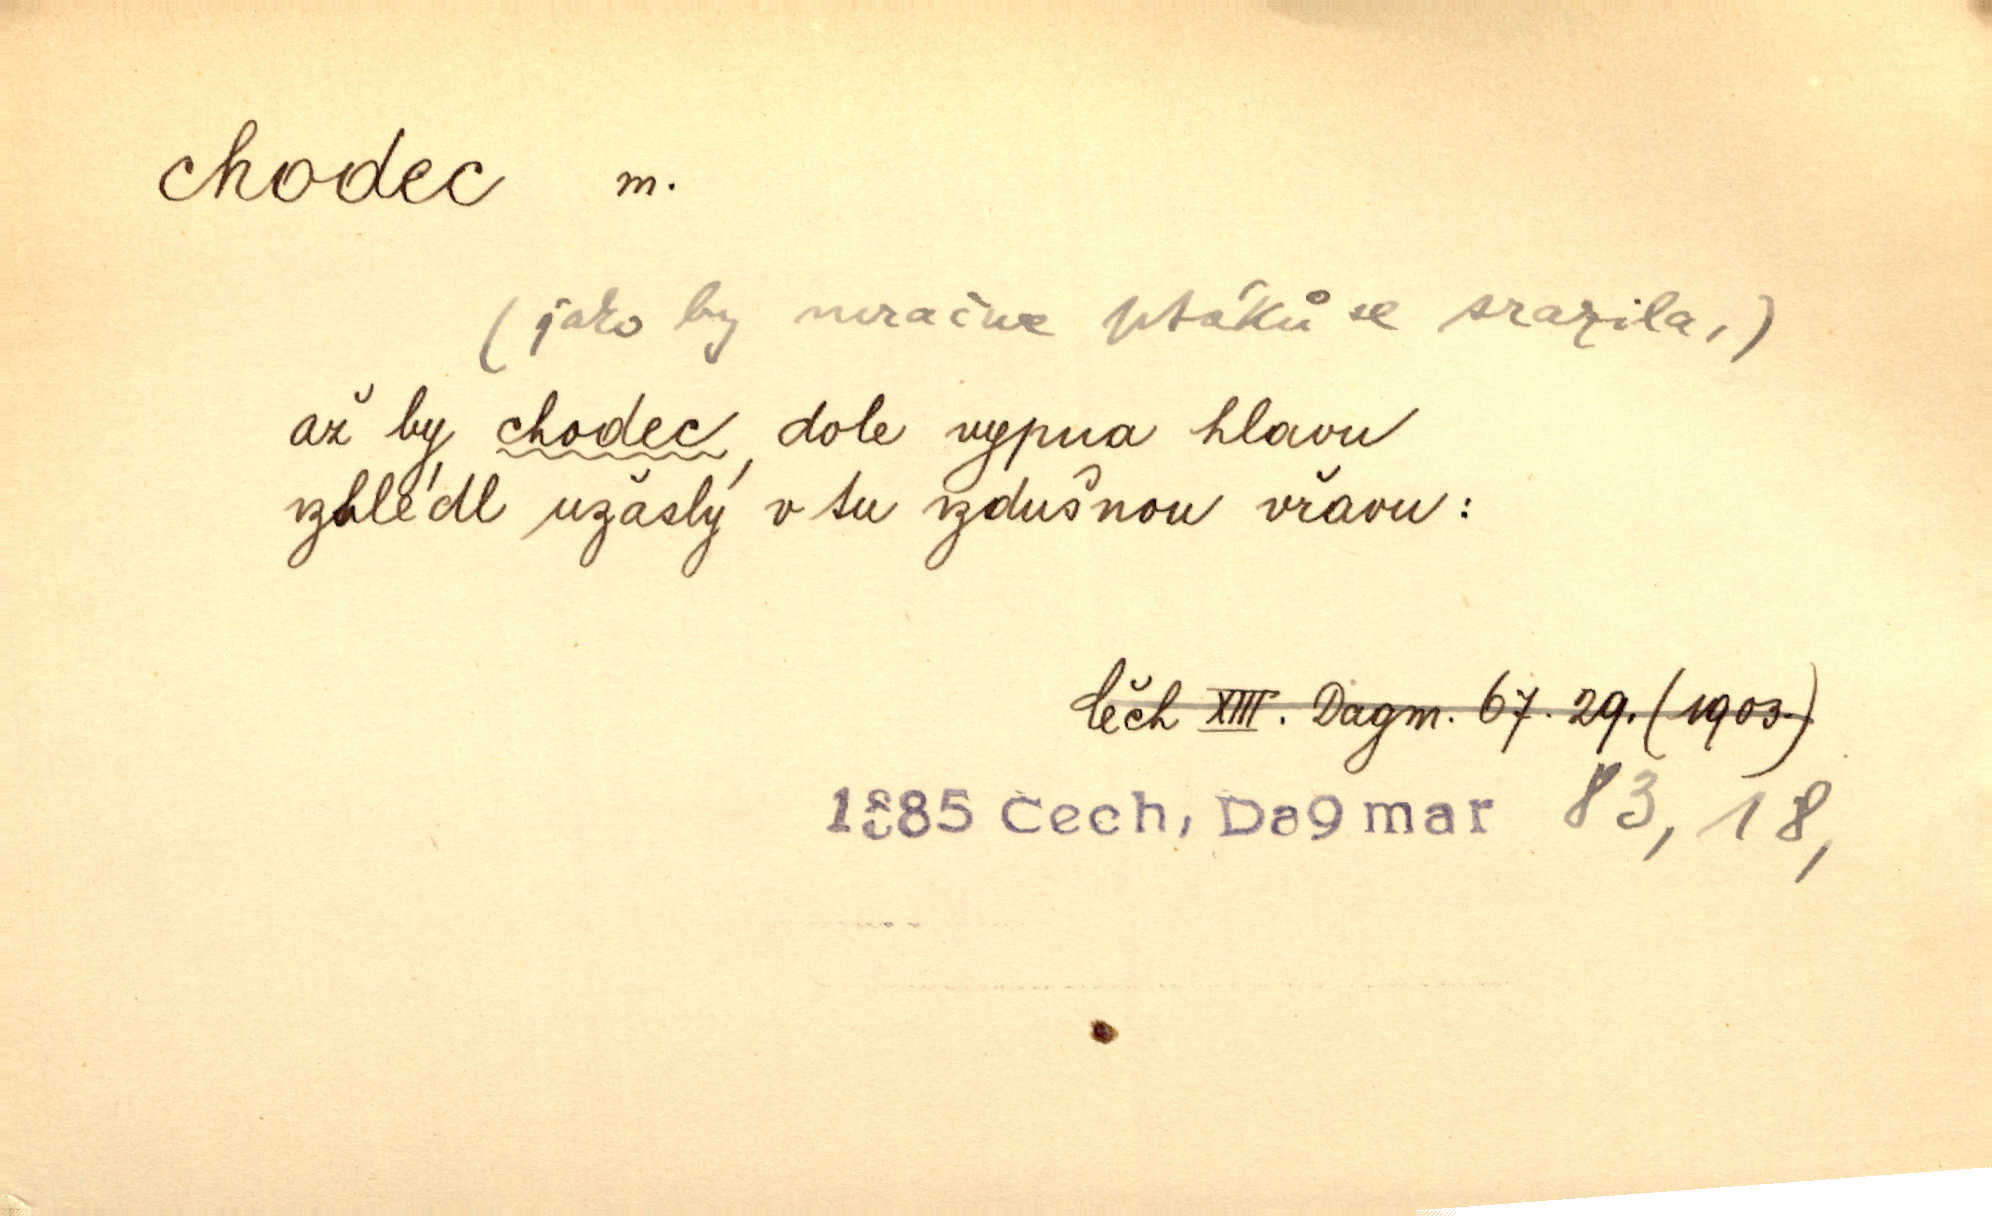 chodec m.
(jako by mračna ptáků se srazila,)
až by chodec, dole vypna hlavu
vzhlédl užaslý v tu vzdušnou vřavu:
Čech XIII. Dagm. 67. 29. (1903.)
1885 Čech, Dagmar 83, 18,